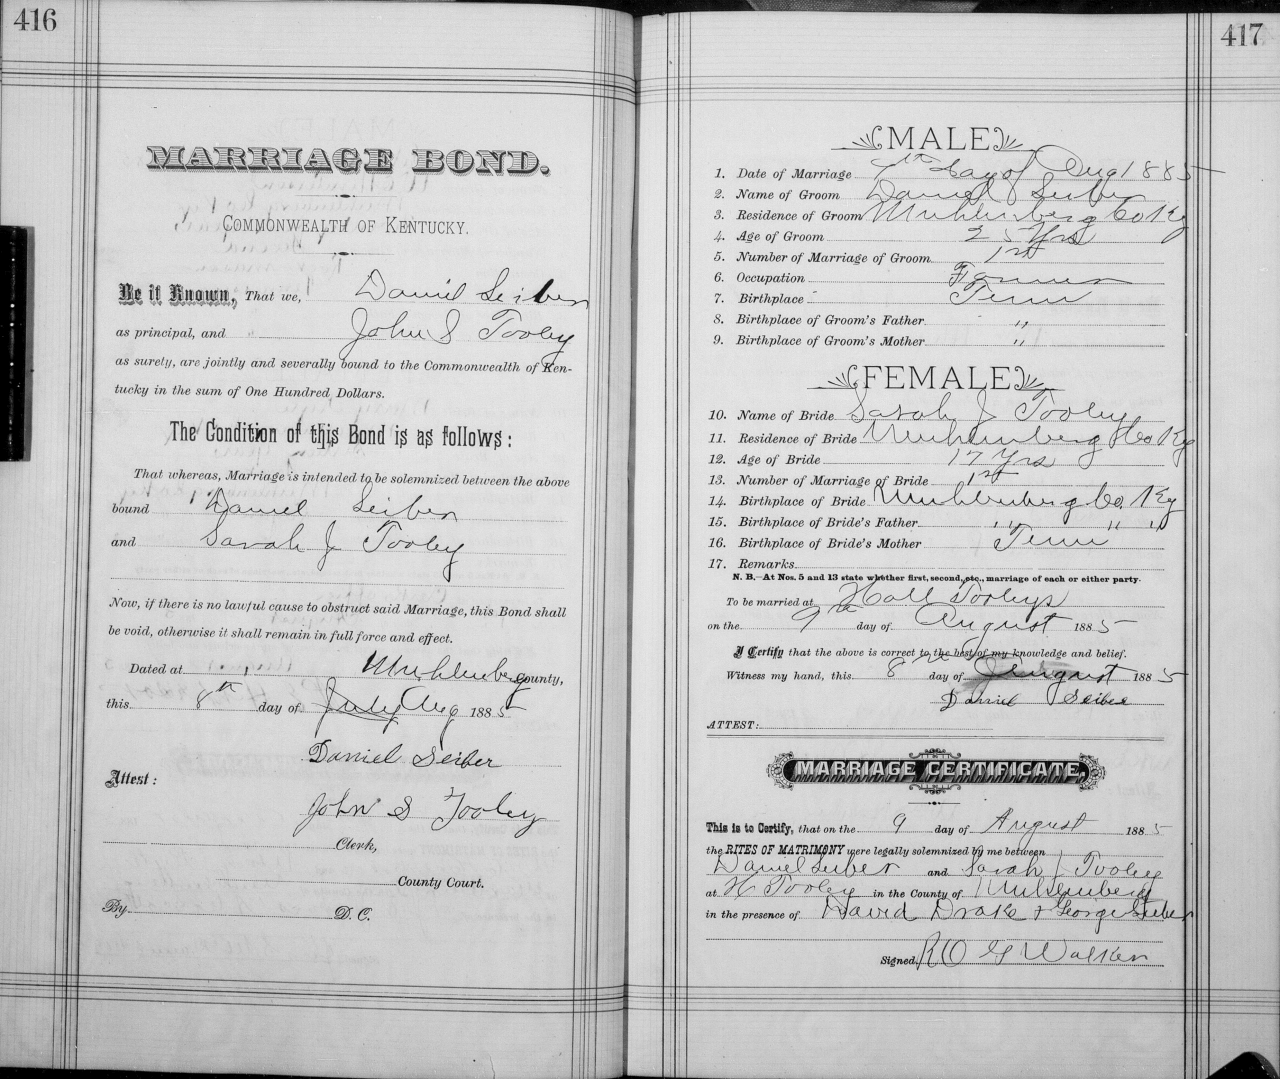 416
MARRIAGE BOND.
COMMONWEALTH OF KENTUCKY.
Be it Known, That we, Daniel Seiber
as principal, and John S Tooley
as surety, are jointly and severally bound to the Commonwealth of Ken-
tucky in the sum of One Hundred Dollars.
The Condition of this Bond is as follows:
That whereas, Marriage is intended to be solemnized between the above
bound Daniel Seiber
and Sarah J Tooley
Now, if there is no lawful cause to obstruct said Marriage, this Bond shall
be void, otherwise it shall remain in full force and effect.
Dated at Muhlenberg County,
this 8th day of July Aug 1885
Daniel Seiber
Attest:
John S Tooley
Clerk,
County Court.
By D. C.
417
MALE
1. Date of Marriage 9th Day of Aug 1885
2. Name of Groom Daniel Seiber
3. Residence of Groom Muhlenberg Co Ky
4. Age of Groom 25 Yrs
5. Number of Marriage of Groom 1st
6. Occupation Farmer
7. Birthplace Tenn
8. Birthplace of Groom's Father "
9. Birthplace of Groom's Mother "
FEMALE
10. Name of Bride Sarah J Tooley
11. Residence of Bride Muhlenberg Co Ky
12. Age of Bride 17 Yrs
13. Number of Marriage of Bride 1st
14. Birthplace of Bride Muhlenberg Co. Ky
15. Birthplace of Bride's Father " " "
16. Birthplace of Bride's Mother Tenn
17. Remarks
N. B.—At Nos. 5 and 13 state whether first, second, etc., marriage of each or either party.
To be married at Hall Tooleys
on the 9th day of August 1885
I Certify that the above is correct to the best of my knowledge and belief.
Witness my hand, this 8th day of August 1885
Daniel Seiber
ATTEST:
MARRIAGE CERTIFICATE.
This is to Certify, that on the 9 day of August 1885
the RITES OF MATRIMONY were legally solemnized by me between
Daniel Seiber and Sarah J Tooley
at H Tooley in the County of Muhlenberg
in the presence of David Drake & George Seiber
Signed, Walker